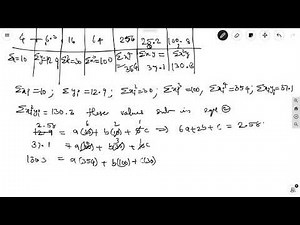 4 6.3 16 64 256 25.2 100.8
Σx=10 Σy=12.9 Σx²=30 Σx³=100 Σx⁴=354 Σxy=37.1 Σx²y=130.3
Σxi=10, Σyi=12.9, Σxi²=30, Σxi³=100, Σxi⁴=354, Σxiyi=37.1
Σxi²yi=130.3 these values sub in eqn ②
2.58 6 2 1
12.9 = a(30)+b(10)+5c ⇒ 6a+2b+c=2.58
37.1 =
130.3 = a(354)+b(100)+c(30)